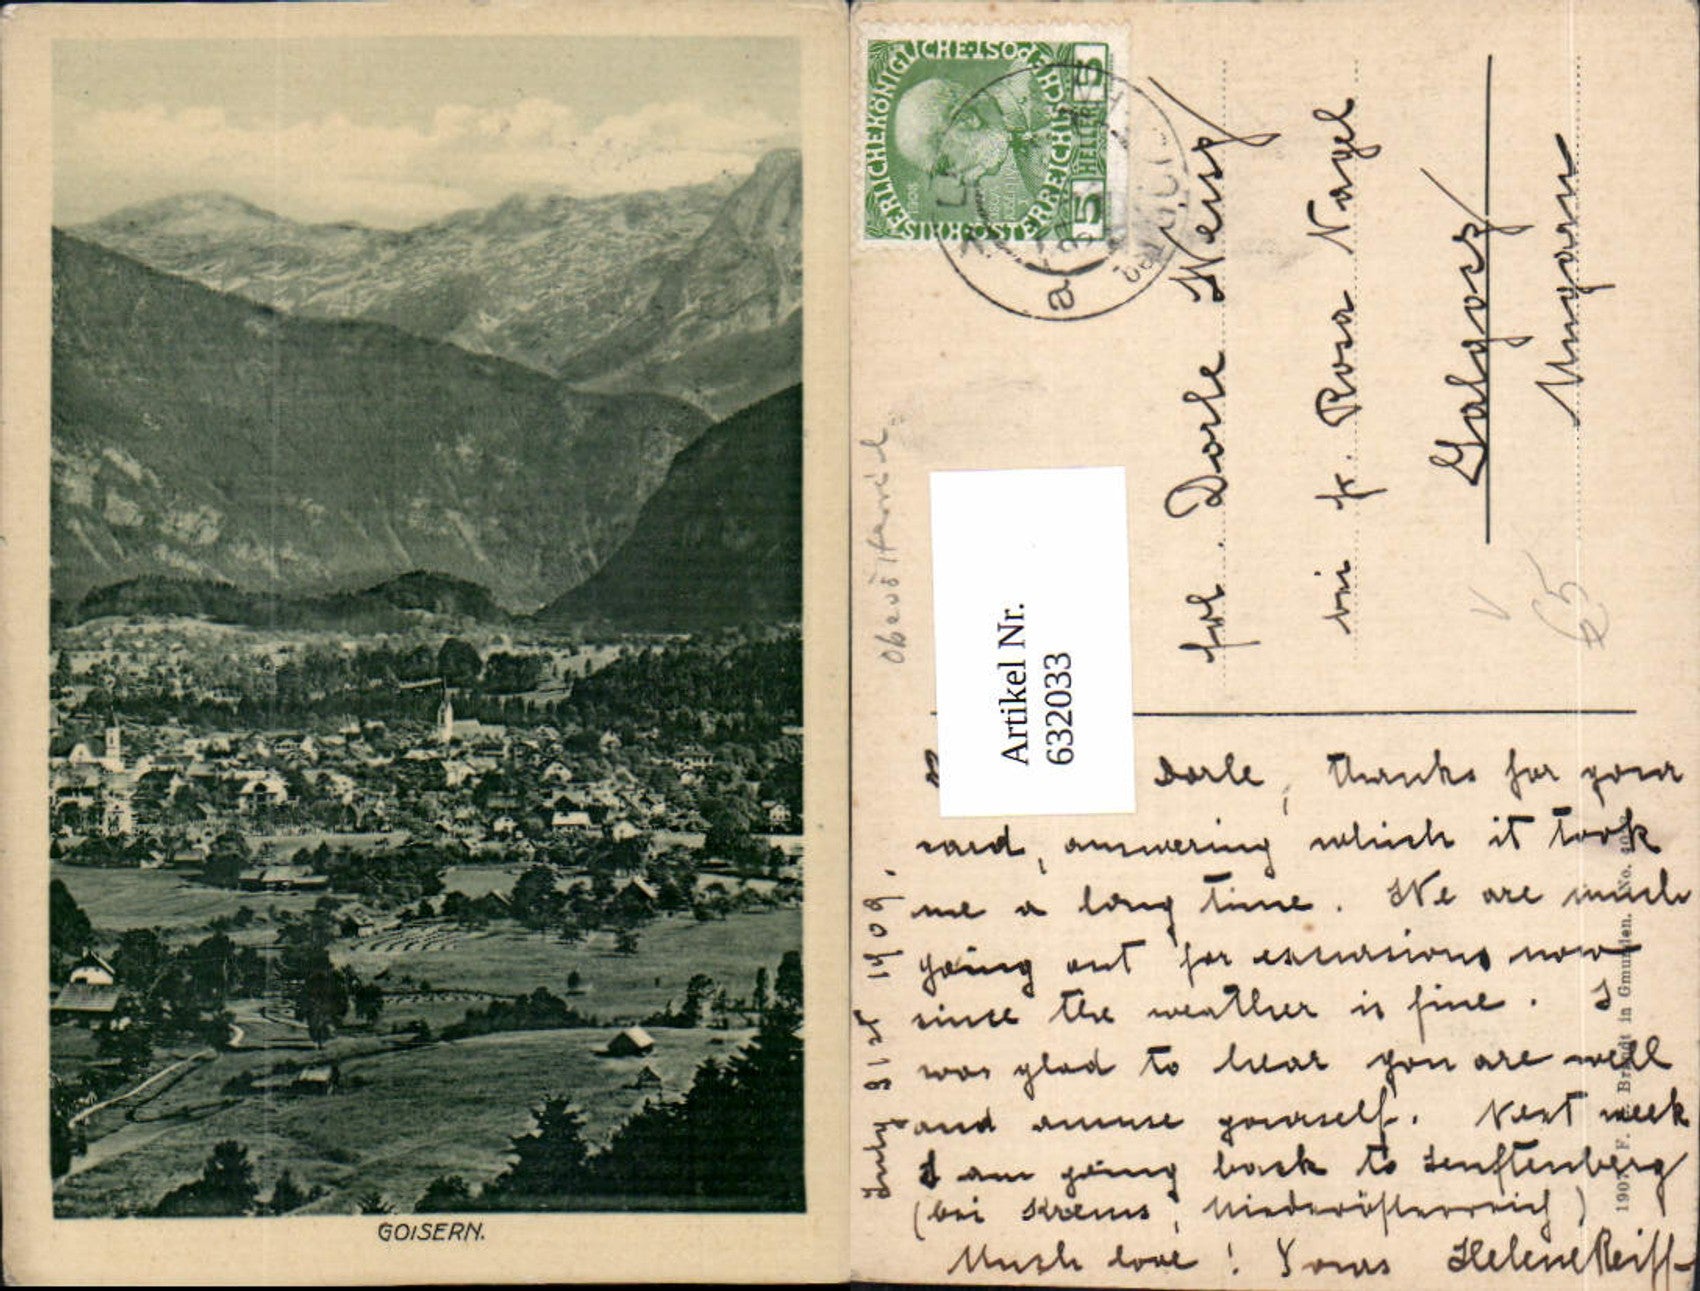 GOISERN.
KAISERLICHE KÖNIGLICHE POST
ÖSTERREICHISCHE
5 HELLER 5
1848 1908
Artikel Nr.
6320033
Frl. Dorle Wenz
bei Fr. Rosa Nagel
Galgocz
Ungarn
65
July 31st 1909.
Dorle, thanks for your
card, answering which it took
me a long time. We are much
going out for excursions now
since the weather is fine. I
was glad to hear you are well
and amuse yourself. Next week
I am going back to Senftenberg
(bei Krems, Niederösterreich)
Much love! Yours Helene Reiff
1907. F. Brandt in Gmunden. No.